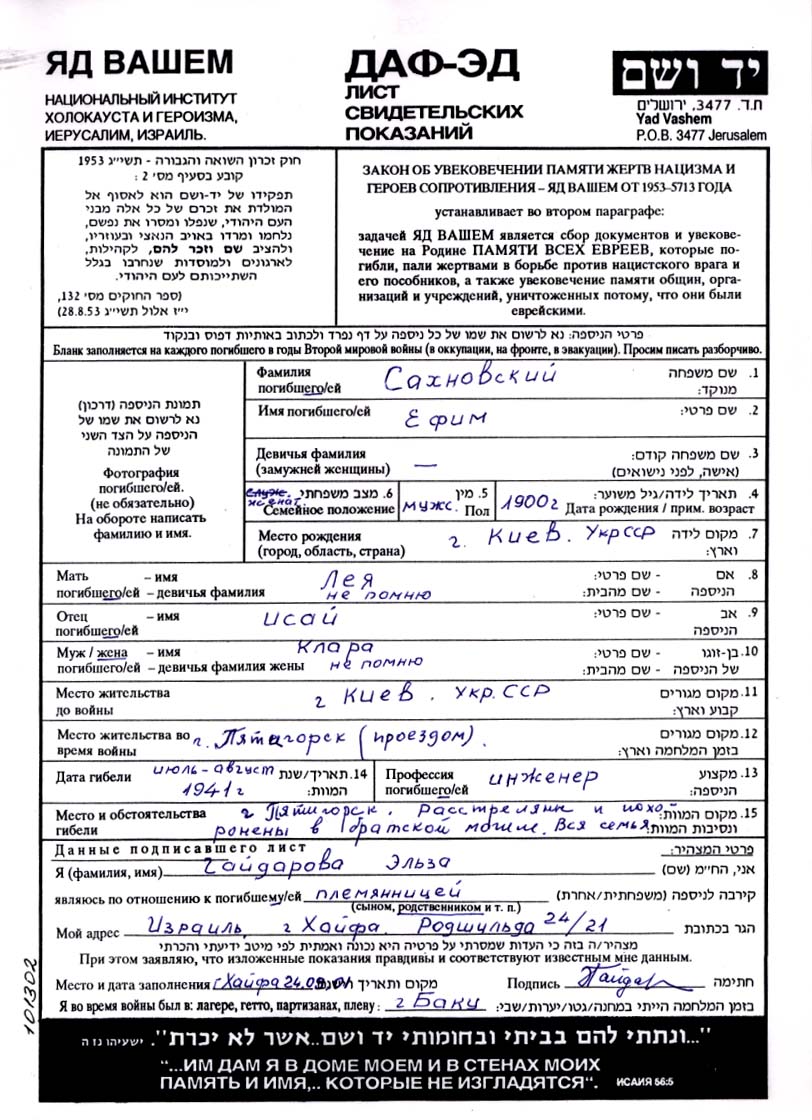 ЯД ВАШЕМ
НАЦИОНАЛЬНЫЙ ИНСТИТУТ
ХОЛОКАУСТА И ГЕРОИЗМА,
ИЕРУСАЛИМ, ИЗРАИЛЬ.
ДАФ-ЭД
ЛИСТ
СВИДЕТЕЛЬСКИХ
ПОКАЗАНИЙ
יד ושם
ת.ד. 3477, ירושלים
Yad Vashem
P.O.B. 3477 Jerusalem
חוק זכרון השואה והגבורה - תשי״ג 1953
קובע בסעיף מס׳ 2 :
תפקידו של יד-ושם הוא לאסוף אל
המולדת את זכרם של כל אלה מבני
העם היהודי, שנפלו ומסרו את נפשם,
נלחמו ומרדו באויב הנאצי ובעוזריו,
ולהציב שם וזכר להם, לקהילות,
לארגונים ולמוסדות שנחרבו בגלל
השתייכותם לעם היהודי.
(ספר החוקים מס׳ 132,
י״ז אלול תשי״ג 28.8.53)
ЗАКОН ОБ УВЕКОВЕЧЕНИИ ПАМЯТИ ЖЕРТВ НАЦИЗМА И
ГЕРОЕВ СОПРОТИВЛЕНИЯ – ЯД ВАШЕМ ОТ 1953–5713 ГОДА
устанавливает во втором параграфе:
задачей ЯД ВАШЕМ является сбор документов и увекове-
чение на Родине ПАМЯТИ ВСЕХ ЕВРЕЕВ, которые по-
гибли, пали жертвами в борьбе против нацистского врага и
его пособников, а также увековечение памяти общин, орга-
низаций и учреждений, уничтоженных потому, что они были
еврейскими.
פרטי הניספה: נא לרשום את שמו של כל ניספה על דף נפרד ולכתוב באותיות דפוס ובנקוד
Бланк заполняется на каждого погибшего в годы Второй мировой войны (в оккупации, на фронте, в эвакуации). Просим писать разборчиво.
תמונת הניספה (דרכון)
נא לרשום את שמו של
הניספה על הצד השני
של התמונה
Фотография
погибшего/ей.
(не обязательно)
На обороте написать
фамилию и имя.
Фамилия Сахновский 1. שם משפחה
погибшего/ей מנוקד:
Имя погибшего/ей Ефим 2. שם פרטי:
Девичья фамилия 3. שם משפחה קודם:
(замужней женщины) — (אישה, לפני נישואים)
женат 6. מצב משפחתי 5. מין 4. תאריך לידה/גיל משוער:
Семейное положение мужс. Пол 1900г Дата рождения / прим. возраст
Место рождения г. Киев. УкрССР 7. מקום לידה
(город, область, страна) וארץ:
Мать – имя Лея 8. אם - שם פרטי:
погибшего/ей – девичья фамилия не помню הניספה - שם מהבית:
Отец – имя Исай 9. אב - שם פרטי:
погибшего/ей הניספה
Муж / жена – имя Клара 10. בן-זוגו - שם פרטי:
погибшего/ей – девичья фамилия жены не помню של הניספה - שם מהבית:
Место жительства г Киев. Укр.ССР 11. מקום מגורים
до войны קבוע וארץ:
Место жительства во г. Пятигорск (проездом). 12. מקום מגורים
время войны בזמן המלחמה וארץ:
Дата гибели июль-август 14. תאריך/שנת Профессия инженер 13. מקצוע
1941г המוות: погибшего/ей הניספה:
Место и обстоятельства г Пятигорск. Расстреляны и похо- 15. מקום המוות:
гибели ронены в братской могиле. Вся семья ונסיבות המוות:
Данные подписавшего лист פרטי המצהיר:
Я (фамилия, имя) Гайдарова Эльза אני, הח״מ (שם)
являюсь по отношению к погибшему/ей племянницей קירבה לניספה (משפחתית/אחרת)
(сыном, родственником и т. п.)
Мой адрес Израиль, г Хайфа. Родшульда 24/21 הגר בכתובת
מצהיר/ה בזה כי העדות שמסרתי על פרטיה היא נכונה ואמתית לפי מיטב ידיעתי והכרתי
При этом заявляю, что изложенные показания правдивы и соответствуют известным мне данным.
Место и дата заполнения г Хайфа מקום ותאריך Подпись Гайдар חתימה
Я во время войны был в: лагере, гетто, партизанах, плену: г Баку בזמן המלחמה הייתי במחנה/גטו/יערות/שבי:
101302
"...ונתתי להם בביתי ובחומותי יד ושם...אשר לא יכרת". ישעיהו נו ה
“...ИМ ДАМ Я В ДОМЕ МОЕМ И В СТЕНАХ МОИХ
ПАМЯТЬ И ИМЯ,.. КОТОРЫЕ НЕ ИЗГЛАДЯТСЯ“. ИСАИЯ 56:5